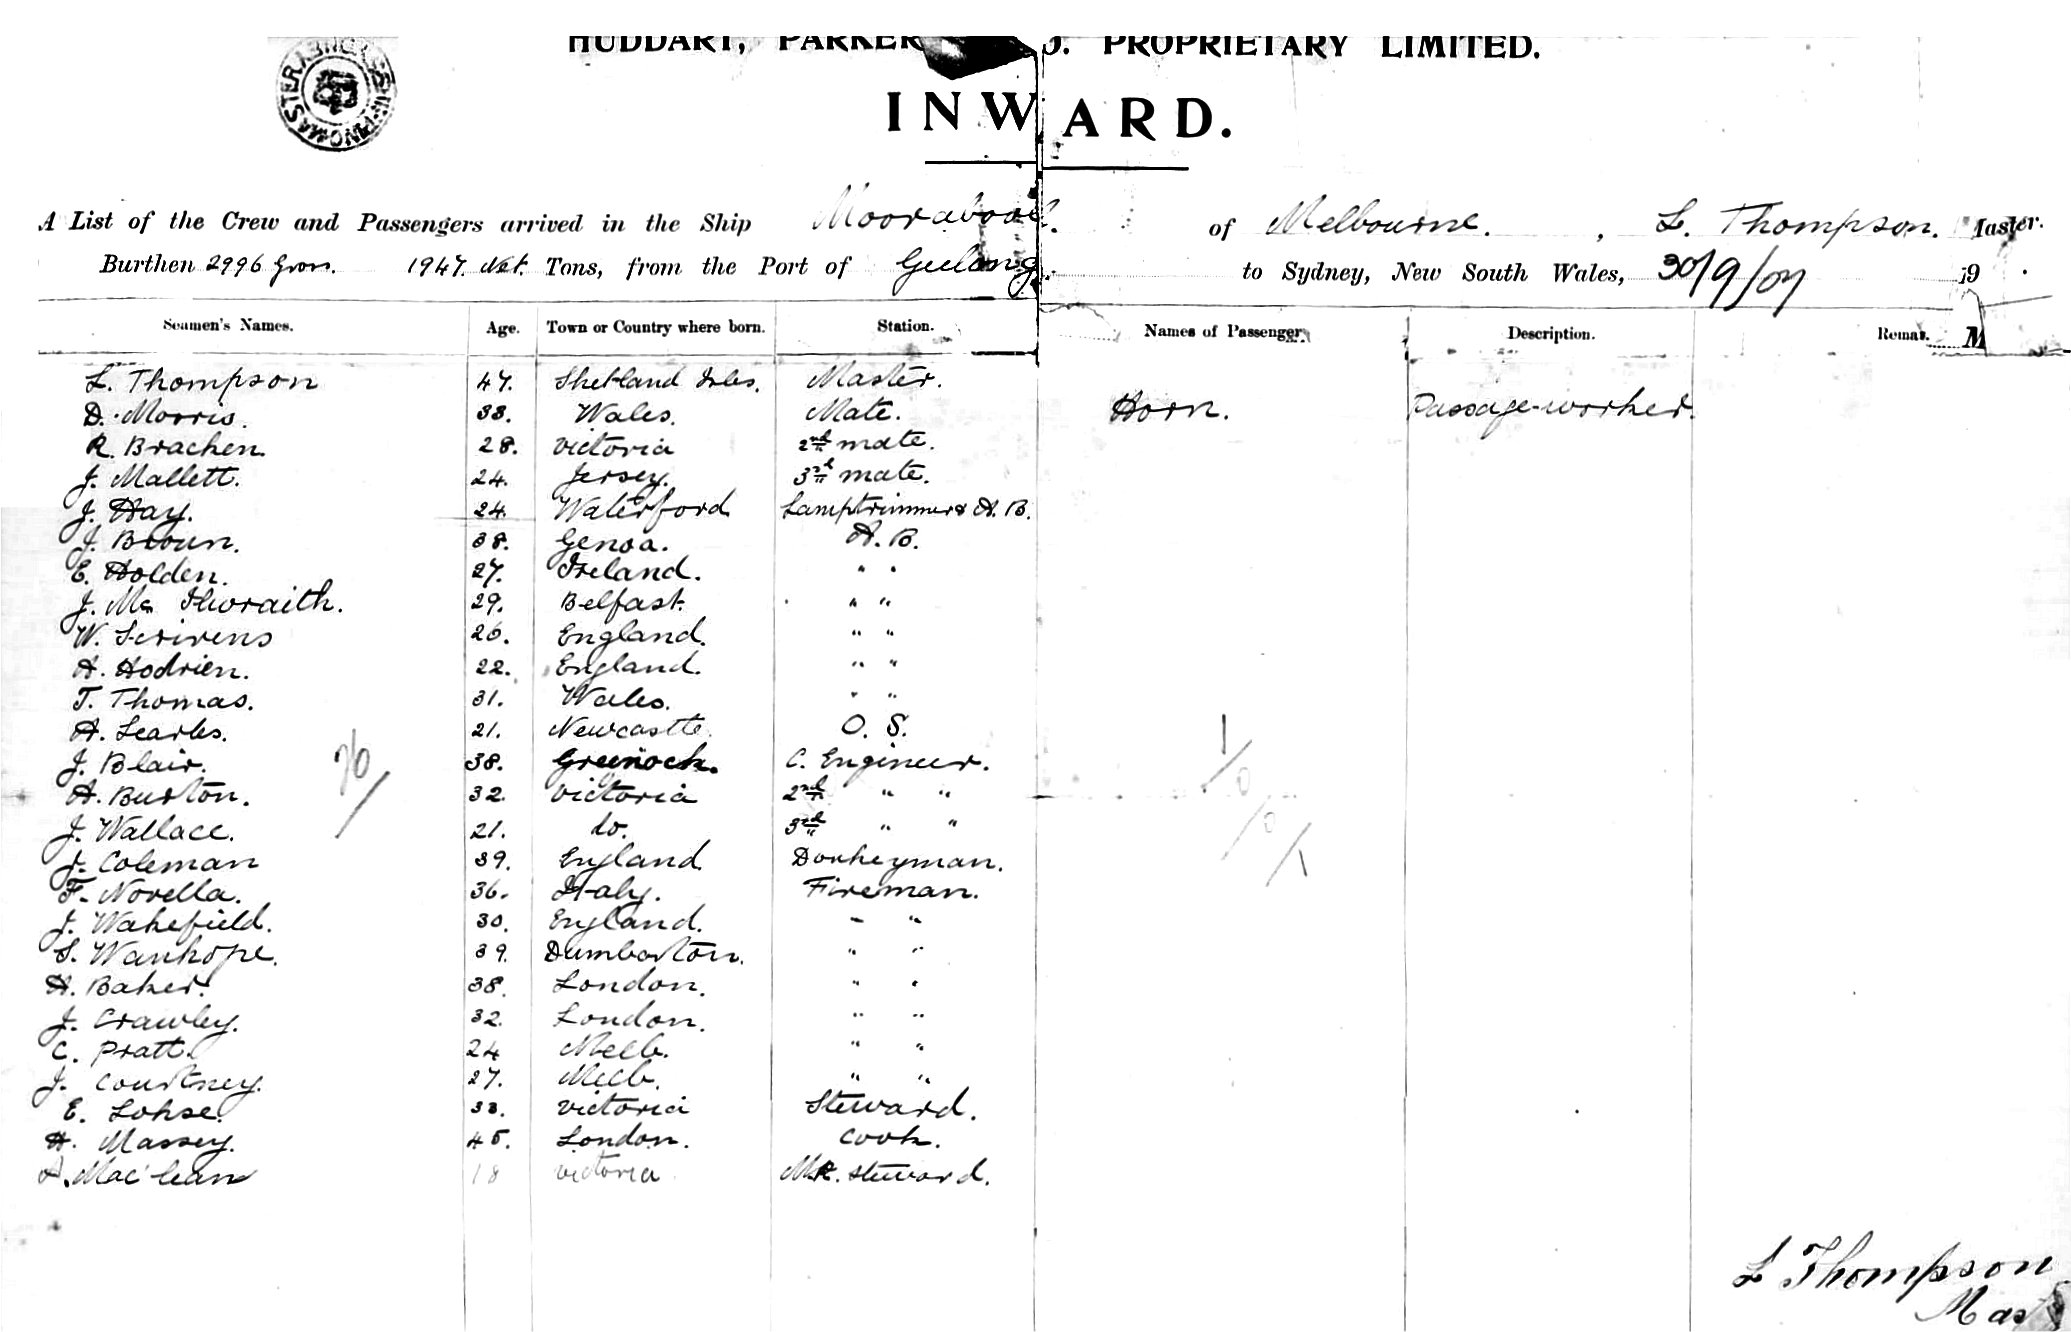 HUDDART, PARKER & CO. PROPRIETARY LIMITED.
INWARD.
A List of the Crew and Passengers arrived in the Ship Moorabool. of Melbourne. , L. Thompson. Master.
Burthen 2996 Gross. 1947. Net. Tons, from the Port of Geelong to Sydney, New South Wales, 30/9/07 19 .
Seamen's Names. Age. Town or Country where born. Station. Names of Passenger Description. Remar
L. Thompson 47. Shetland Isles. Master.
D. Morris. 33. Wales. Mate. Horn. Passage-worker.
R. Bracken. 28. Victoria 2nd mate.
J. Mallett. 24. Jersey. 3rd mate.
J. Hay. 24. Waterford Lamptrimmer & A. B.
J. Broun. 38. Genoa. A. B.
E. Holden. 27. Ireland. " "
J. Mc Ilwraith. 29. Belfast. " "
W. Scrivens 26. England. " "
A. Hodrien. 22. England. " "
T. Thomas. 31. Wales. " "
A. Searles. 21. Newcastle. O. S.
J. Blair. 38. Greenock. C. Engineer.
A. Burton. 32. Victoria 2nd " "
J. Wallace. 21. do. 3rd " "
J. Coleman 39. England Donkeyman.
F. Novella. 36. Italy. Fireman.
J. Wakefield. 30. England. " "
S. Wanhope. 39. Dumbarton. " "
H. Baker. 38. London. " "
J. Crawley. 32. London. " "
C. Pratt. 24 Melb. " "
J. Courtney. 27. Melb. " "
E. Lohse. 33. Victoria Steward.
H. Massey. 45. London. Cook.
A. Mac'lean 18 Victoria M.R. Steward.
26/
1/0/0/1
L Thompson
Mas